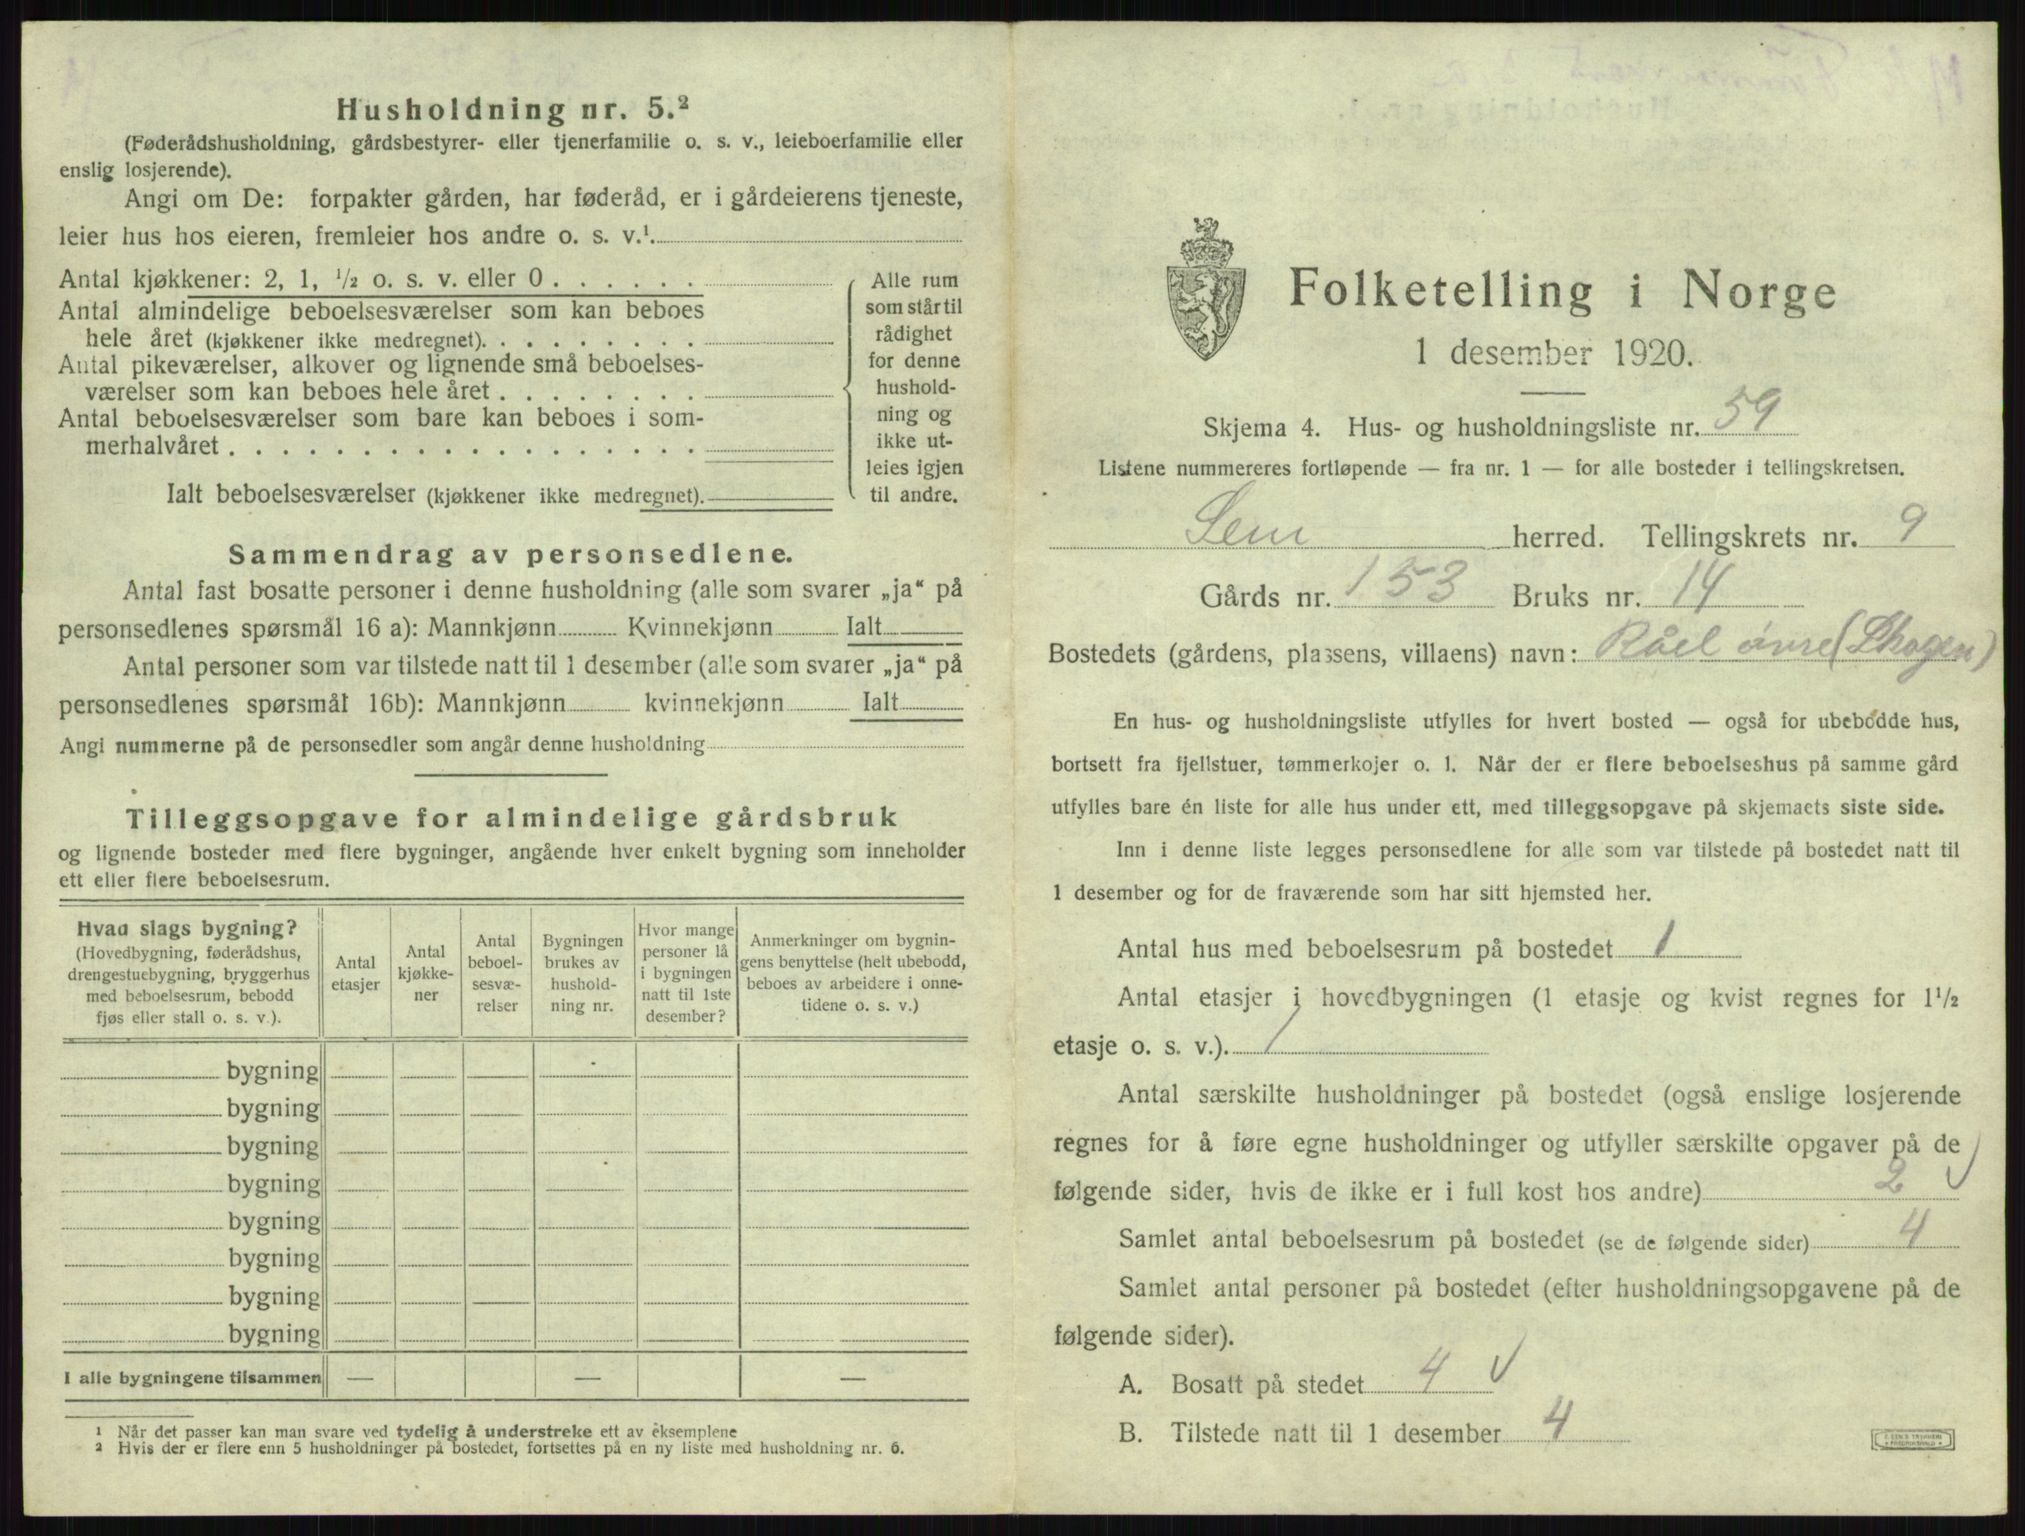 Husholdning nr. 5.²
(Føderådshusholdning, gårdsbestyrer- eller tjenerfamilie o. s. v., leieboerfamilie eller
enslig losjerende).
Angi om De: forpakter gården, har føderåd, er i gårdeierens tjeneste,
leier hus hos eieren, fremleier hos andre o. s. v.¹
Antal kjøkkener: 2, 1, ½ o. s. v. eller 0
Antal almindelige beboelsesværelser som kan beboes
hele året (kjøkkener ikke medregnet).
Antal pikeværelser, alkover og lignende små beboelses-
værelser som kan beboes hele året
Antal beboelsesværelser som bare kan beboes i som-
merhalvåret
Ialt beboelsesværelser (kjøkkener ikke medregnet).
Alle rum
som står til
rådighet
for denne
hushold-
ning og
ikke ut-
leies igjen
til andre.
Sammendrag av personsedlene.
Antal fast bosatte personer i denne husholdning (alle som svarer „ja“ på
personsedlenes spørsmål 16 a): Mannkjønn Kvinnekjønn Ialt
Antal personer som var tilstede natt til 1 desember (alle som svarer „ja“ på
personsedlenes spørsmål 16b): Mannkjønn kvinnekjønn Ialt
Angi nummerne på de personsedler som angår denne husholdning
Tilleggsopgave for almindelige gårdsbruk
og lignende bosteder med flere bygninger, angående hver enkelt bygning som inneholder
ett eller flere beboelsesrum.
Hvad slags bygning?
(Hovedbygning, føderådshus,
drengestuebygning, bryggerhus
med beboelsesrum, bebodd
fjøs eller stall o. s. v.).
Antal
etasjer
Antal
kjøkke-
ner
Antal
beboel-
sesvæ-
relser
Bygningen
brukes av
hushold-
ning nr.
Hvor mange
personer lå
i bygningen
natt til 1ste
desember?
Anmerkninger om bygnin-
gens benyttelse (helt ubebodd,
beboes av arbeidere i onne-
tidene o. s. v.)
bygning
bygning
bygning
bygning
bygning
bygning
bygning
bygning
I alle bygningene tilsammen — — —
¹ Når det passer kan man svare ved tydelig å understreke ett av eksemplene
² Hvis der er flere enn 5 husholdninger på bostedet, fortsettes på en ny liste med husholdning nr. 6.
Folketelling i Norge
1 desember 1920.
Skjema 4. Hus- og husholdningsliste nr. 59
Listene nummereres fortløpende — fra nr. 1 — for alle bosteder i tellingskretsen.
Sem herred. Tellingskrets nr. 9
Gårds nr. 153 Bruks nr. 14
Bostedets (gårdens, plassens, villaens) navn: Råel øvre (Skogen)
En hus- og husholdningsliste utfylles for hvert bosted — også for ubebodde hus,
bortsett fra fjellstuer, tømmerkojer o. l. Når der er flere beboelseshus på samme gård
utfylles bare én liste for alle hus under ett, med tilleggsopgave på skjemaets siste side.
Inn i denne liste legges personsedlene for alle som var tilstede på bostedet natt til
1 desember og for de fraværende som har sitt hjemsted her.
Antal hus med beboelsesrum på bostedet 1
Antal etasjer i hovedbygningen (1 etasje og kvist regnes for 1½
etasje o. s. v.). 1
Antal særskilte husholdninger på bostedet (også enslige losjerende
regnes for å føre egne husholdninger og utfyller særskilte opgaver på de
følgende sider, hvis de ikke er i full kost hos andre) 2 √
Samlet antal beboelsesrum på bostedet (se de følgende sider) 4
Samlet antal personer på bostedet (efter husholdningsopgavene på de
følgende sider).
A. Bosatt på stedet 4 √
B. Tilstede natt til 1 desember 4